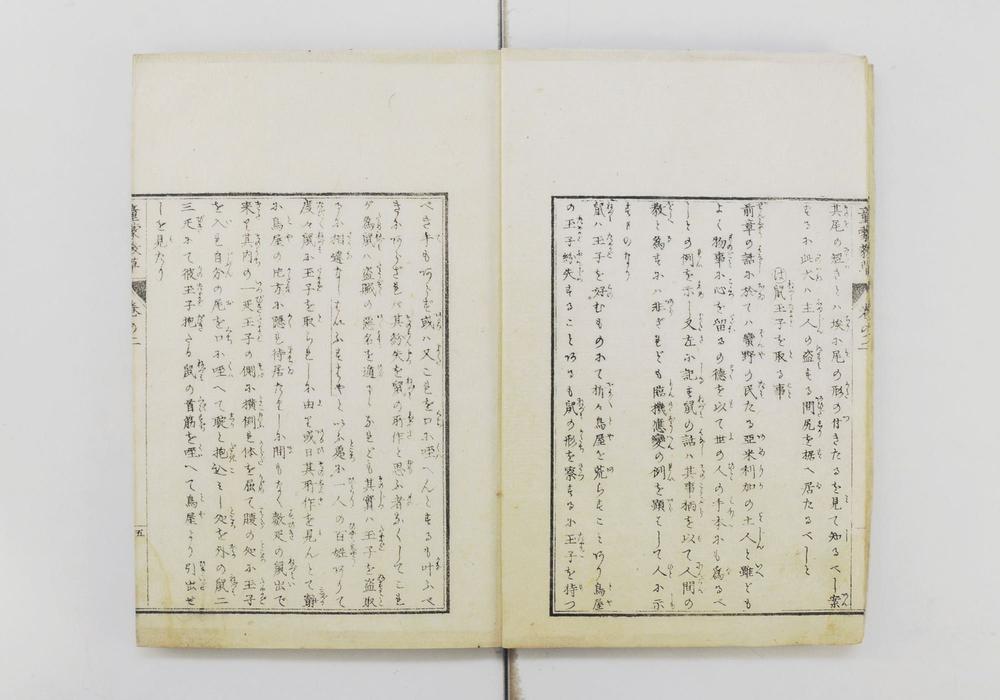 其尾の短きとハ埃に尾の形の付きたるを見て知るべし案
ずるに此犬ハ主人の盗をする間尻を据へ居たるべしと
(は)鼠玉子を取る事
前章の話に於てハ蠻野の民たる亜米利加の土人と雖ども
よく物事に心を留るの徳を以て世の人の手本にも爲るべ
しとの例を示し又左に記す鼠の話ハ其事柄を以て人間の
教と爲すにハ非ざれども臨機應變の例を顕して人に示
すものなり
鼠ハ玉子を好むものにて折々鳥屋を荒らすことあり鳥屋
の玉子紛失することあるも鼠の形を察するに玉子を持つ
べき手もあらず或ハ又これを口に咥へんとするも叶ふべ
きにあらざれバ其紛失を鼠の所作と思ふ者なくしてこれ
が爲鼠ハ盗賊の惡名を遁るゝなれども其實ハ玉子を盗取
るに相違なしはんふしやとと いふ處に一人の百姓ありて
度々鼠に玉子を取られしに由り或日其所作を見んとて竊
に鳥屋の地方に隠れ待居たりしに間もなく數疋の鼠出で
来り其内の一疋玉子の側に横倒れ体を屈て腹の処に玉子
を入れ自分の尾を口に咥へて聢と抱込みし処を外の鼠二
三疋にて彼玉子抱たる鼠の首筋を咥へて鳥屋より引出せ
しを見たり
童蒙教草
巻の二
五